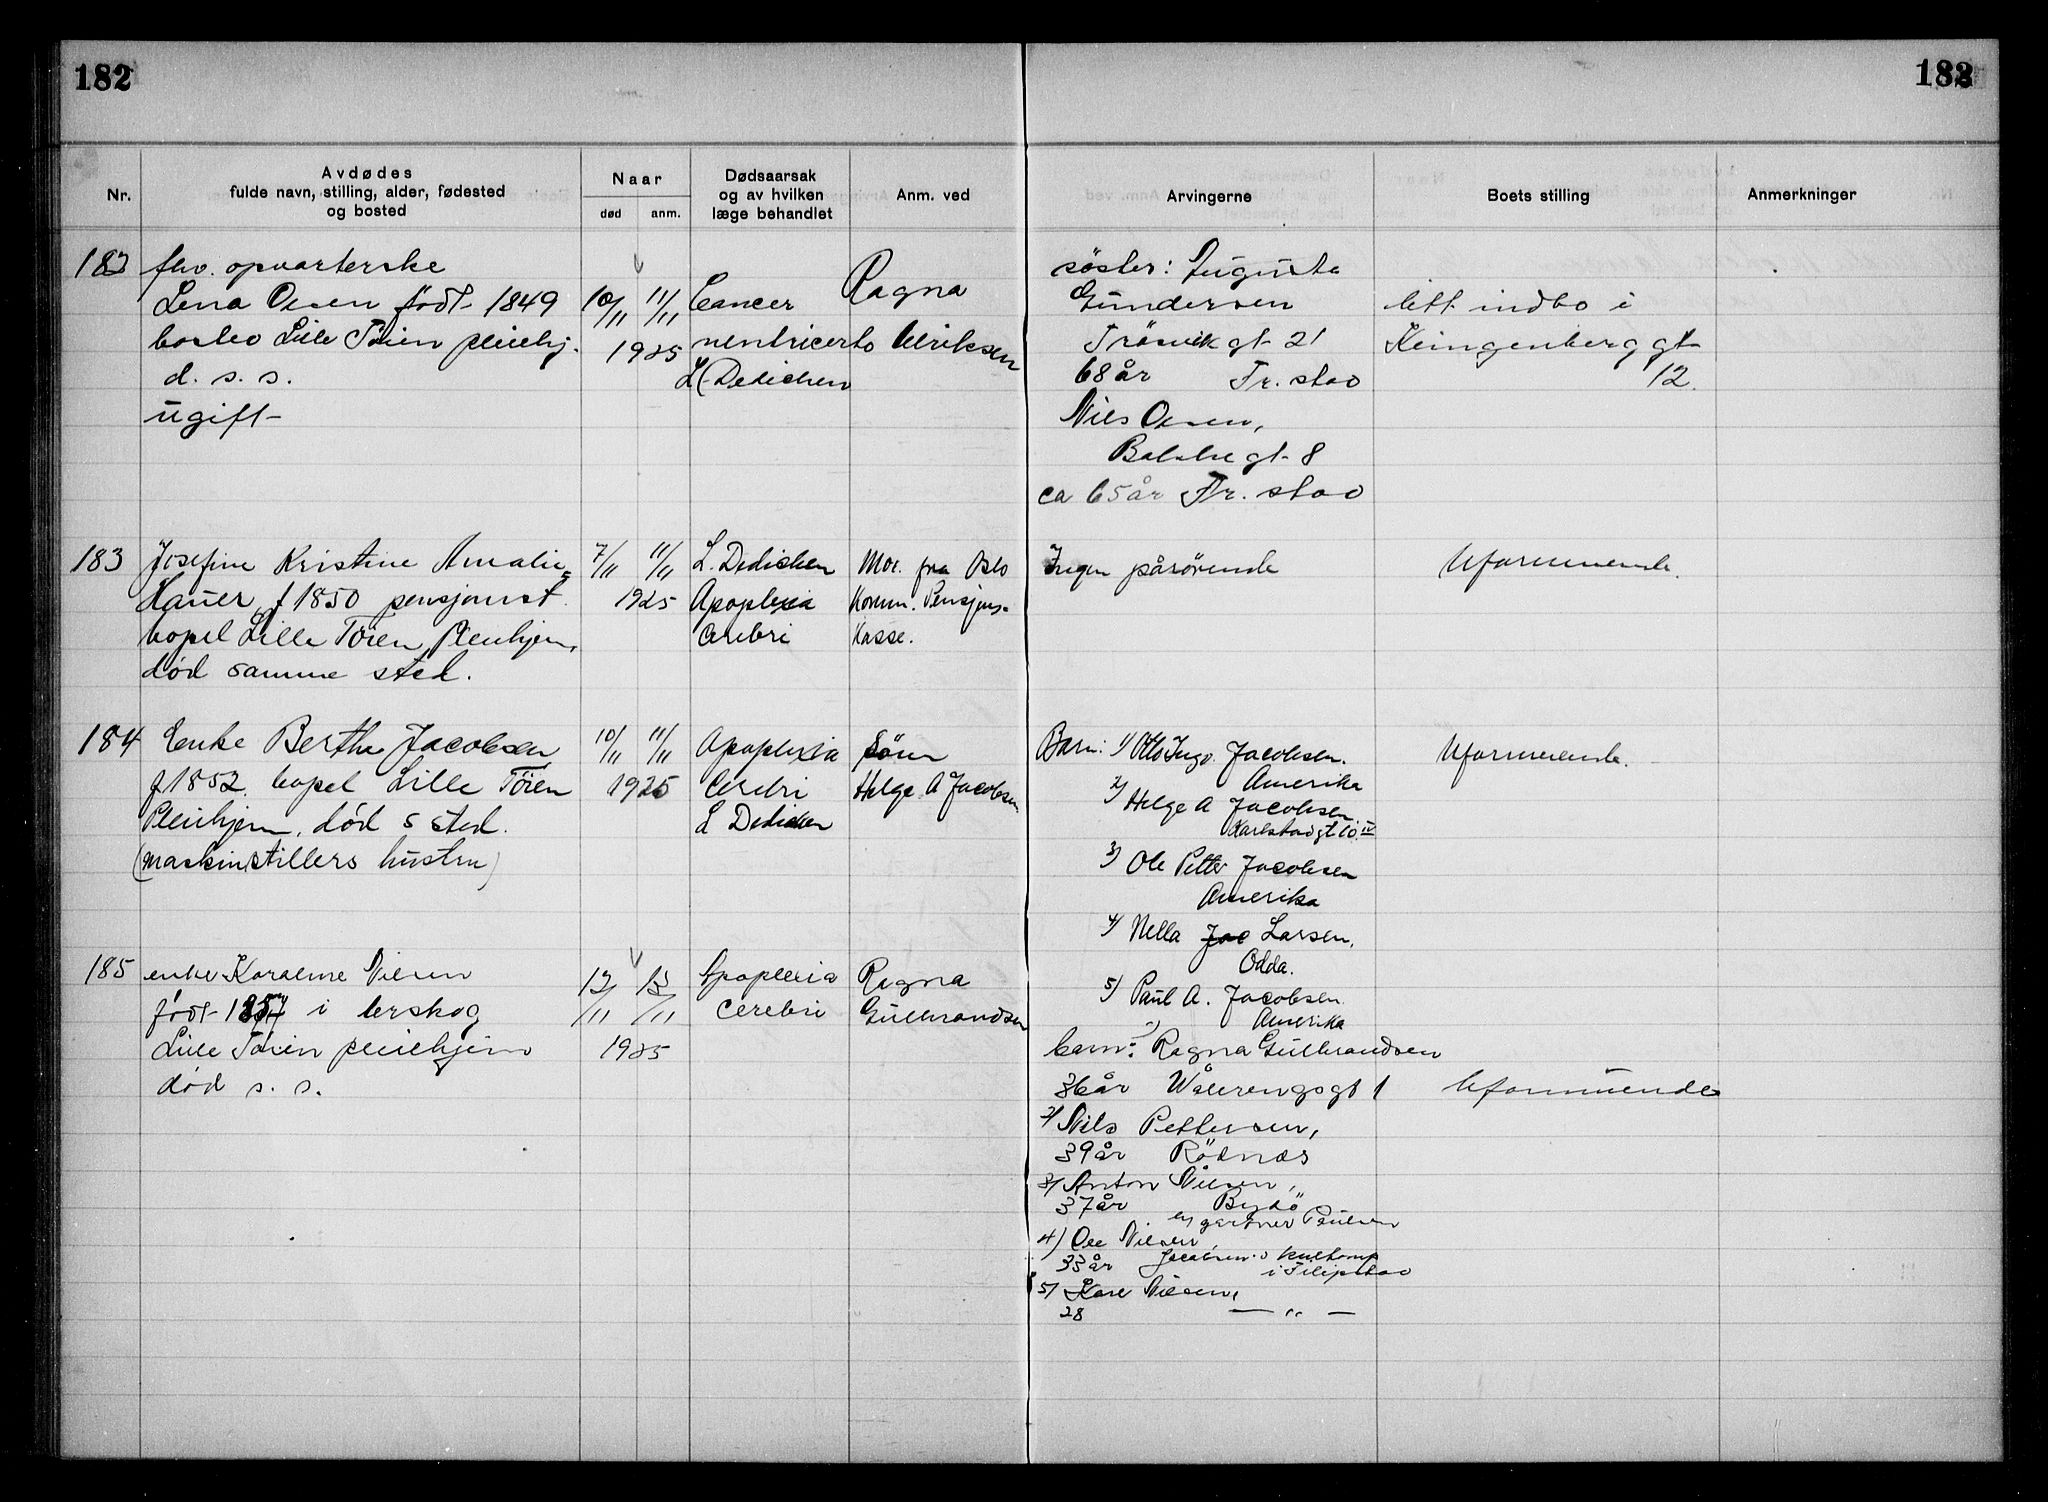 182
183
Nr.
Avdødes
fulde navn, stilling, alder, fødested
og bosted
Naar
død
anm.
Dødsaarsak
og av hvilken
læge behandlet
Anm. ved
Arvingerne
Boets stilling
Anmerkninger
182
fhv. opvarterske
Lena Olsen født 1849
bosted Lille Tøien pleiehj.
d. s. s.
ugift
10/11 11/11
1925
Cancer
ventriculi
L. Dedichen
Ragna
Ulriksen
søster: Augusta
Gundersen
Trosvik gt 21
68 år Fr. stad
Nils Olsen,
gt 8
ca 65 år Fr. stad
litt indbo i
Klingenberg gt
12.
183
Josefine Kristine Amalie
Hauer, f 1850 pensjonist
bopel Lille Tøien Pleiehjem,
død samme sted.
7/11 11/11
1925
L. Dedichen
Apoplexia
cerebri
fra Oslo
Komm. Pensjons-
Kasse.
Ingen pårørende
Uformuende.
184
Enke Bertha Jacobsen
f 1852. bopel Lille Tøien
Pleiehjem, død s sted.
(maskinstillers hustru)
10/11 11/11
1925
Apoplexia
Cerebri
L Dedichen
Sønn
Helge A Jacobsen
Barn: 1) Otto Ingv. Jacobsen.
Amerika
2) Helge A Jacobsen
Karlstadgt 10 IV
3) Ole Petter Jacobsen
Amerika
4) Nella Jac Larsen,
Odda.
5) Paul A. Jacobsen
Amerika
Uformuende.
185
enke Karoline Nilsen
født 1857 i Aerskog
Lille Tøien pleiehjem
død s. s.
12/11 13/11
1925
Apoplexia
cerebri
Ragna
Gulbrandsen
barn: 1) Ragna Gulbrandsen
36 år Vålerengsgt 1
2) Nils Pettersen,
39 år Rödnes
3) Anton Nilsen,
37 år Bygdö
gartner Paulsen
4) Ole Nilsen
33 år Jacobsen kulkomp
i Filipstad
5) Karl Nilsen,
28 — „ —
Uformuende